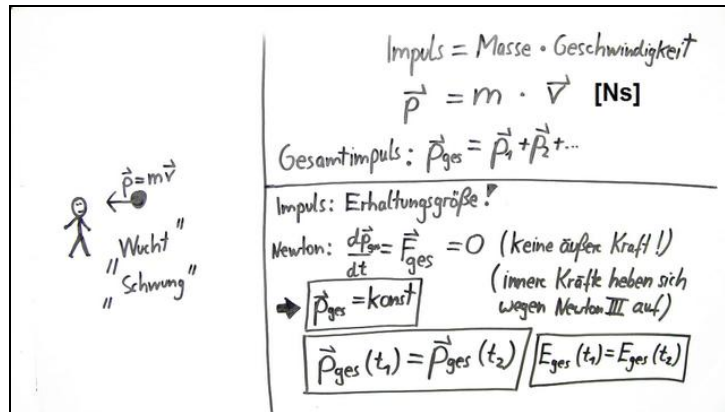 p⃗ = mv⃗
"Wucht"
"Schwung"
Impuls = Masse · Geschwindigkeit
p⃗ = m · v⃗ [Ns]
Gesamtimpuls: p⃗ges = p⃗1 + p⃗2 + ...
Impuls: Erhaltungsgröße!
Newton: dp⃗ges/dt = F⃗ges = 0 (keine äußere Kraft!)
(innere Kräfte heben sich
wegen Newton III auf)
➡ p⃗ges = konst
p⃗ges(t1) = p⃗ges(t2) Eges(t1) = Eges(t2)